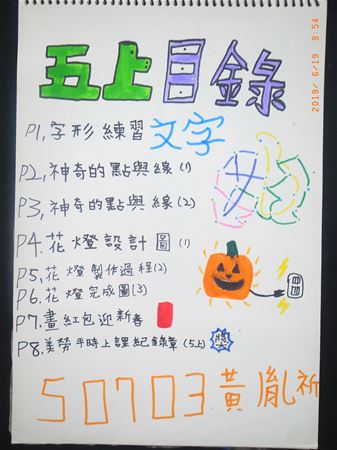 2019/ 6/19 9:54
五上目錄
P1,字形練習文字
P2,神奇的點與線(1)
P3,神奇的點與線(2)
P4.花燈設計圖(1)
P5.花燈製作過程(2)
P6.花燈完成圖(3)
P7.畫紅包迎新春
P8.美勞平時上課紀錄章(5上)獎
50703黃胤祈